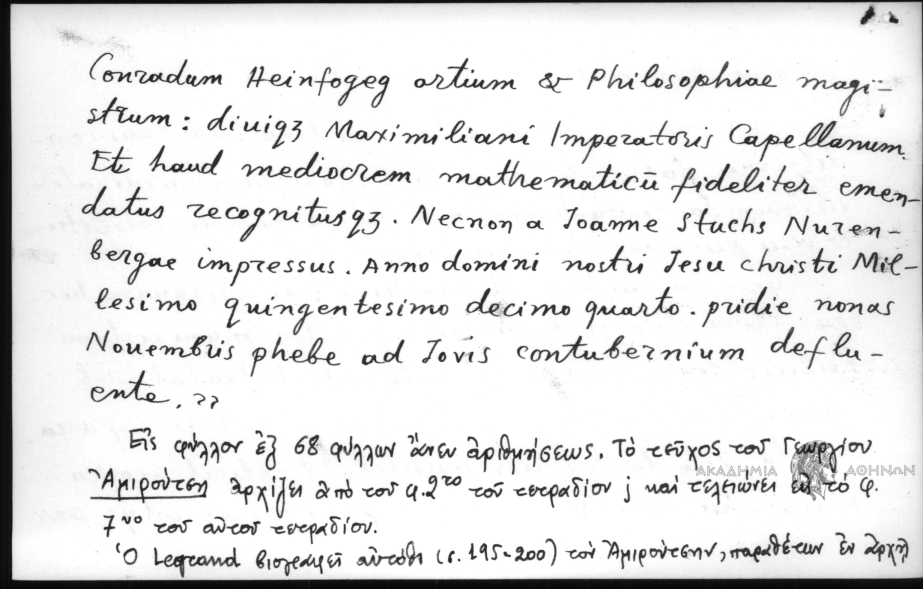 Conradum Heinfogeg artium & Philosophiae magi-
strum: diuiqз Maximiliani Imperatoris Capellanum.
Et haud mediocrem mathematicū fideliter emen-
datus recognitusqз. Necnon a Joanne Stuchs Nuren-
bergae impressus. Anno domini nostri Jesu christi Mil-
lesimo quingentesimo decimo quarto. pridie nonas
Nouembris phebe ad Jovis contubernium deflu-
ente.”
Εἰς φύλλον ἐξ 68 φύλλων ἄνευ ἀριθμήσεως. Τὸ τεῦχος τοῦ Γεωργίου
Ἀμιρούτση ἀρχίζει ἀπὸ τοῦ φ. 2το τοῦ τετραδίου j καὶ τελειώνει εἰς τὸ φ.
7νο τοῦ αὐτοῦ τετραδίου.
Ὁ Legrand βιογραφεῖ αὐτόθι (σ. 195-200) τὸν Ἀμιρούτσην, παραθέτων ἐν ἀρχῇ
ΑΚΑΔΗΜΙΑ ΑΘΗΝΩΝ